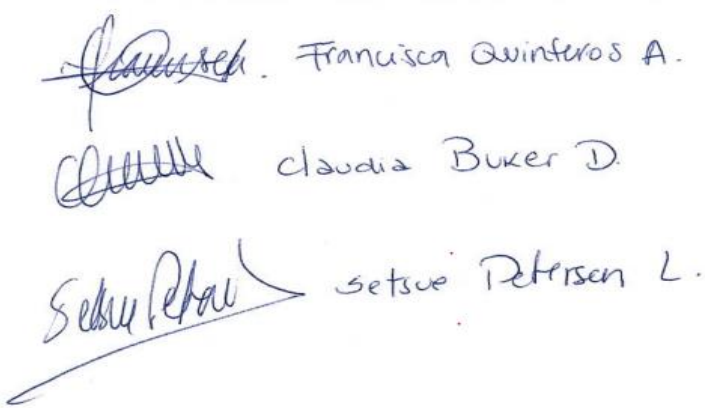 Francisca Quinteros A.
Claudia Buker D.
Setsue Petersen L.